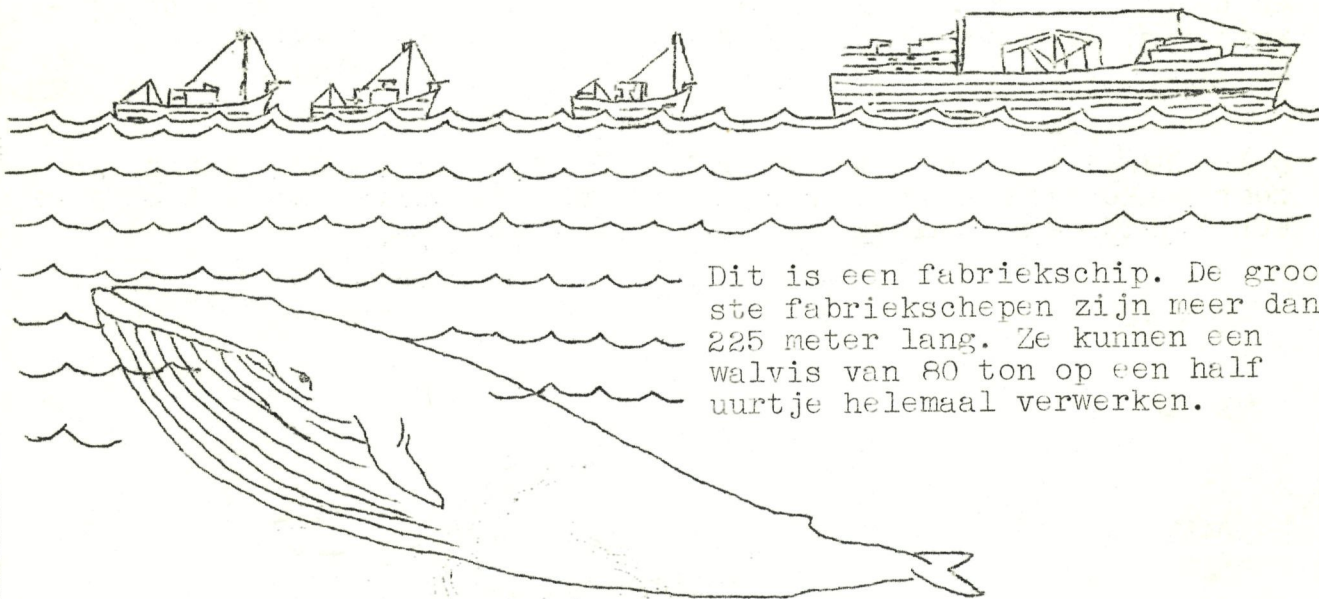 Dit is een fabriekschip. De groo
ste fabriekschepen zijn meer dan
225 meter lang. Ze kunnen een
walvis van 80 ton op een half
uurtje helemaal verwerken.